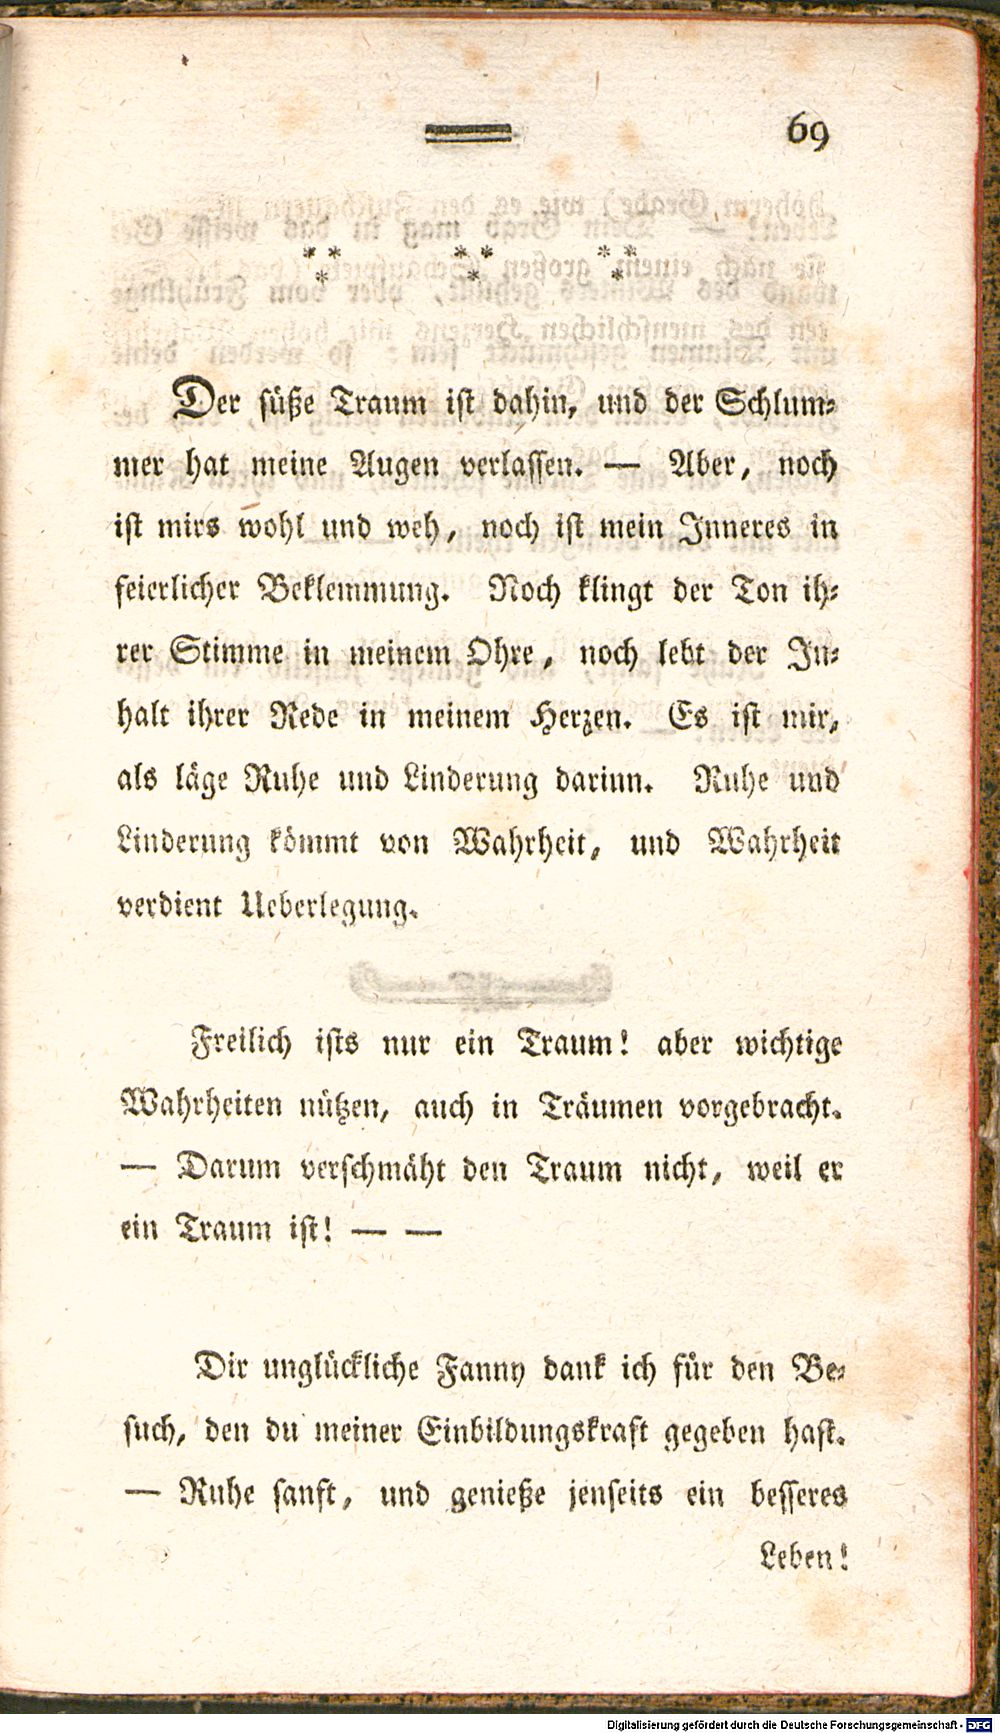 69
** ** **
* * *
Der süße Traum ist dahin, und der Schlum-
mer hat meine Augen verlassen. — Aber, noch
ist mirs wohl und weh, noch ist mein Inneres in
feierlicher Beklemmung. Noch klingt der Ton ih-
rer Stimme in meinem Ohre, noch lebt der In-
halt ihrer Rede in meinem Herzen. Es ist mir,
als läge Ruhe und Linderung darinn. Ruhe und
Linderung kömmt von Wahrheit, und Wahrheit
verdient Ueberlegung.
Freilich ists nur ein Traum! aber wichtige
Wahrheiten nützen, auch in Träumen vorgebracht.
— Darum verschmäht den Traum nicht, weil er
ein Traum ist! — —
Dir unglückliche Fanny dank ich für den Be-
such, den du meiner Einbildungskraft gegeben hast.
— Ruhe sanft, und genieße jenseits ein besseres
Leben!
Digitalisierung gefördert durch die Deutsche Forschungsgemeinschaft - DFG